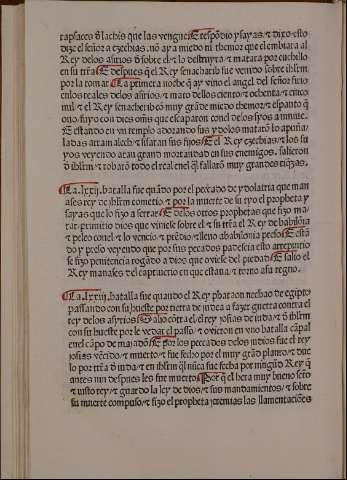 rapsaces d'lachis que las vengue E respōdio ysayas. ⁊ dixo esto
dize el señor a ezechias. no ay a miedo ni themor que el embiara al
Rey delos asirios d' sobre el. ⁊ lo destruyra ⁊ matara por cuchillo
en su trr̄a E despues q̄ el Rey senacharib fue venido sobre ih'lm
por la tomar La primera noche q̄ ay vino el angel del señor firio
enlos reales delos asirios. ⁊ mato dellos ciento ⁊ ochenta. ⁊ cinco
mil. ⁊ el Rey senacherib cō muy grād̄e miedo themor ⁊ espanto q̄
ouo. fuyo con dios om̄s que escaparon conel delos syos a niniue.
E estando en vn templo adorando sus ydolos mataro lo a puña/
ladas adramalech ⁊ sarasar sus fijos E el Rey ezechias ⁊ los su
yos veyendo atan grand mortandad en sus enemigos. salieron
d' ih'lm ⁊ robarō todo el real enel q̄l fallarō muy grandes riq̄zas.
La .lxxij. batalla fue quādo por el peccado de ydolatria que man
ases rey de ih'lm cometio ⁊ por la muerte de su tyo el propheta y
sayas que lo fizo aserrar E delos otros prophetas que fizo ma/
tar primitio dios que viniese sobre el ⁊ su trr̄a el Rey de babilonia
⁊ peleo conel ⁊ lo vencio. ⁊ prēdio ⁊ lleuo a babilonia preso E estā
do y preso veyendo que por sus peccados padescia esto arrepintio
se fizo penitencia rogādo a dios que ouiese del piedad E salio el
Rey manases del captiuerio en que estaua. ⁊ torno a su regno.
La .lxxiij. batalla fue quando el Rey pharaon nechao de egipto
passando con su hueste por tierra de iudea a fazer guerra contra el
rey delos asyrios Salio cōtra el el rey iosias de iuda ⁊ d' ih'lm
con su hueste por le vedar el passo. ⁊ ouieron en vno batalla cāpal
enel cāpo de magadō E por los peccados delos iudios fue el rey
iosias vēcido ⁊ muerto. ⁊ fue fecho por el muy grād planto. ⁊ due
lo por trr̄a d' iuda. ⁊ en ih'lm q̄l nūca fue fecha por ningūd Rey q̄
antes nin despues les fue muerto Por q̄ el hera muy bueno scō
⁊ iusto rey. ⁊ guardo la ley de dios. ⁊ sus mandamientos. ⁊ sobre
su muerte compuso. ⁊ fizo el propheta jeremias las llamentaciōes